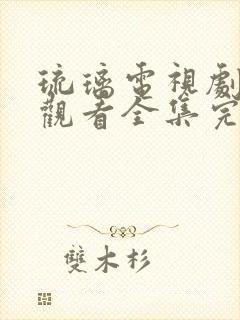 琉璃電視劇
觀看全集完
雙木杉